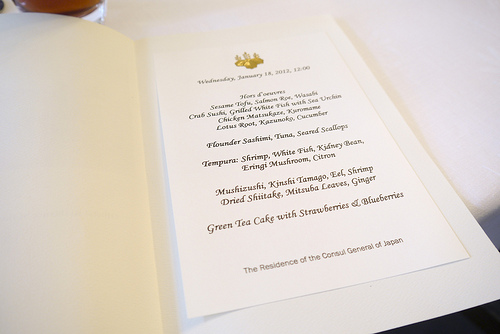 Wednesday, January 18, 2012, 12:00
Hors d'oeuvres
Sesame Tofu, Salmon Roe, Wasabi
Crab Sushi, Grilled White Fish with Sea Urchin
Chicken Matsukaze, Kuromame
Lotus Root, Kazunoko, Cucumber
Flounder Sashimi, Tuna, Seared Scallops
Tempura: Shrimp, White Fish, Kidney Bean,
Eringi Mushroom, Citron
Mushizushi, Kinshi Tamago, Eel, Shrimp
Dried Shiitake, Mitsuba Leaves, Ginger
Green Tea Cake with Strawberries & Blueberries
The Residence of the Consul General of Japan